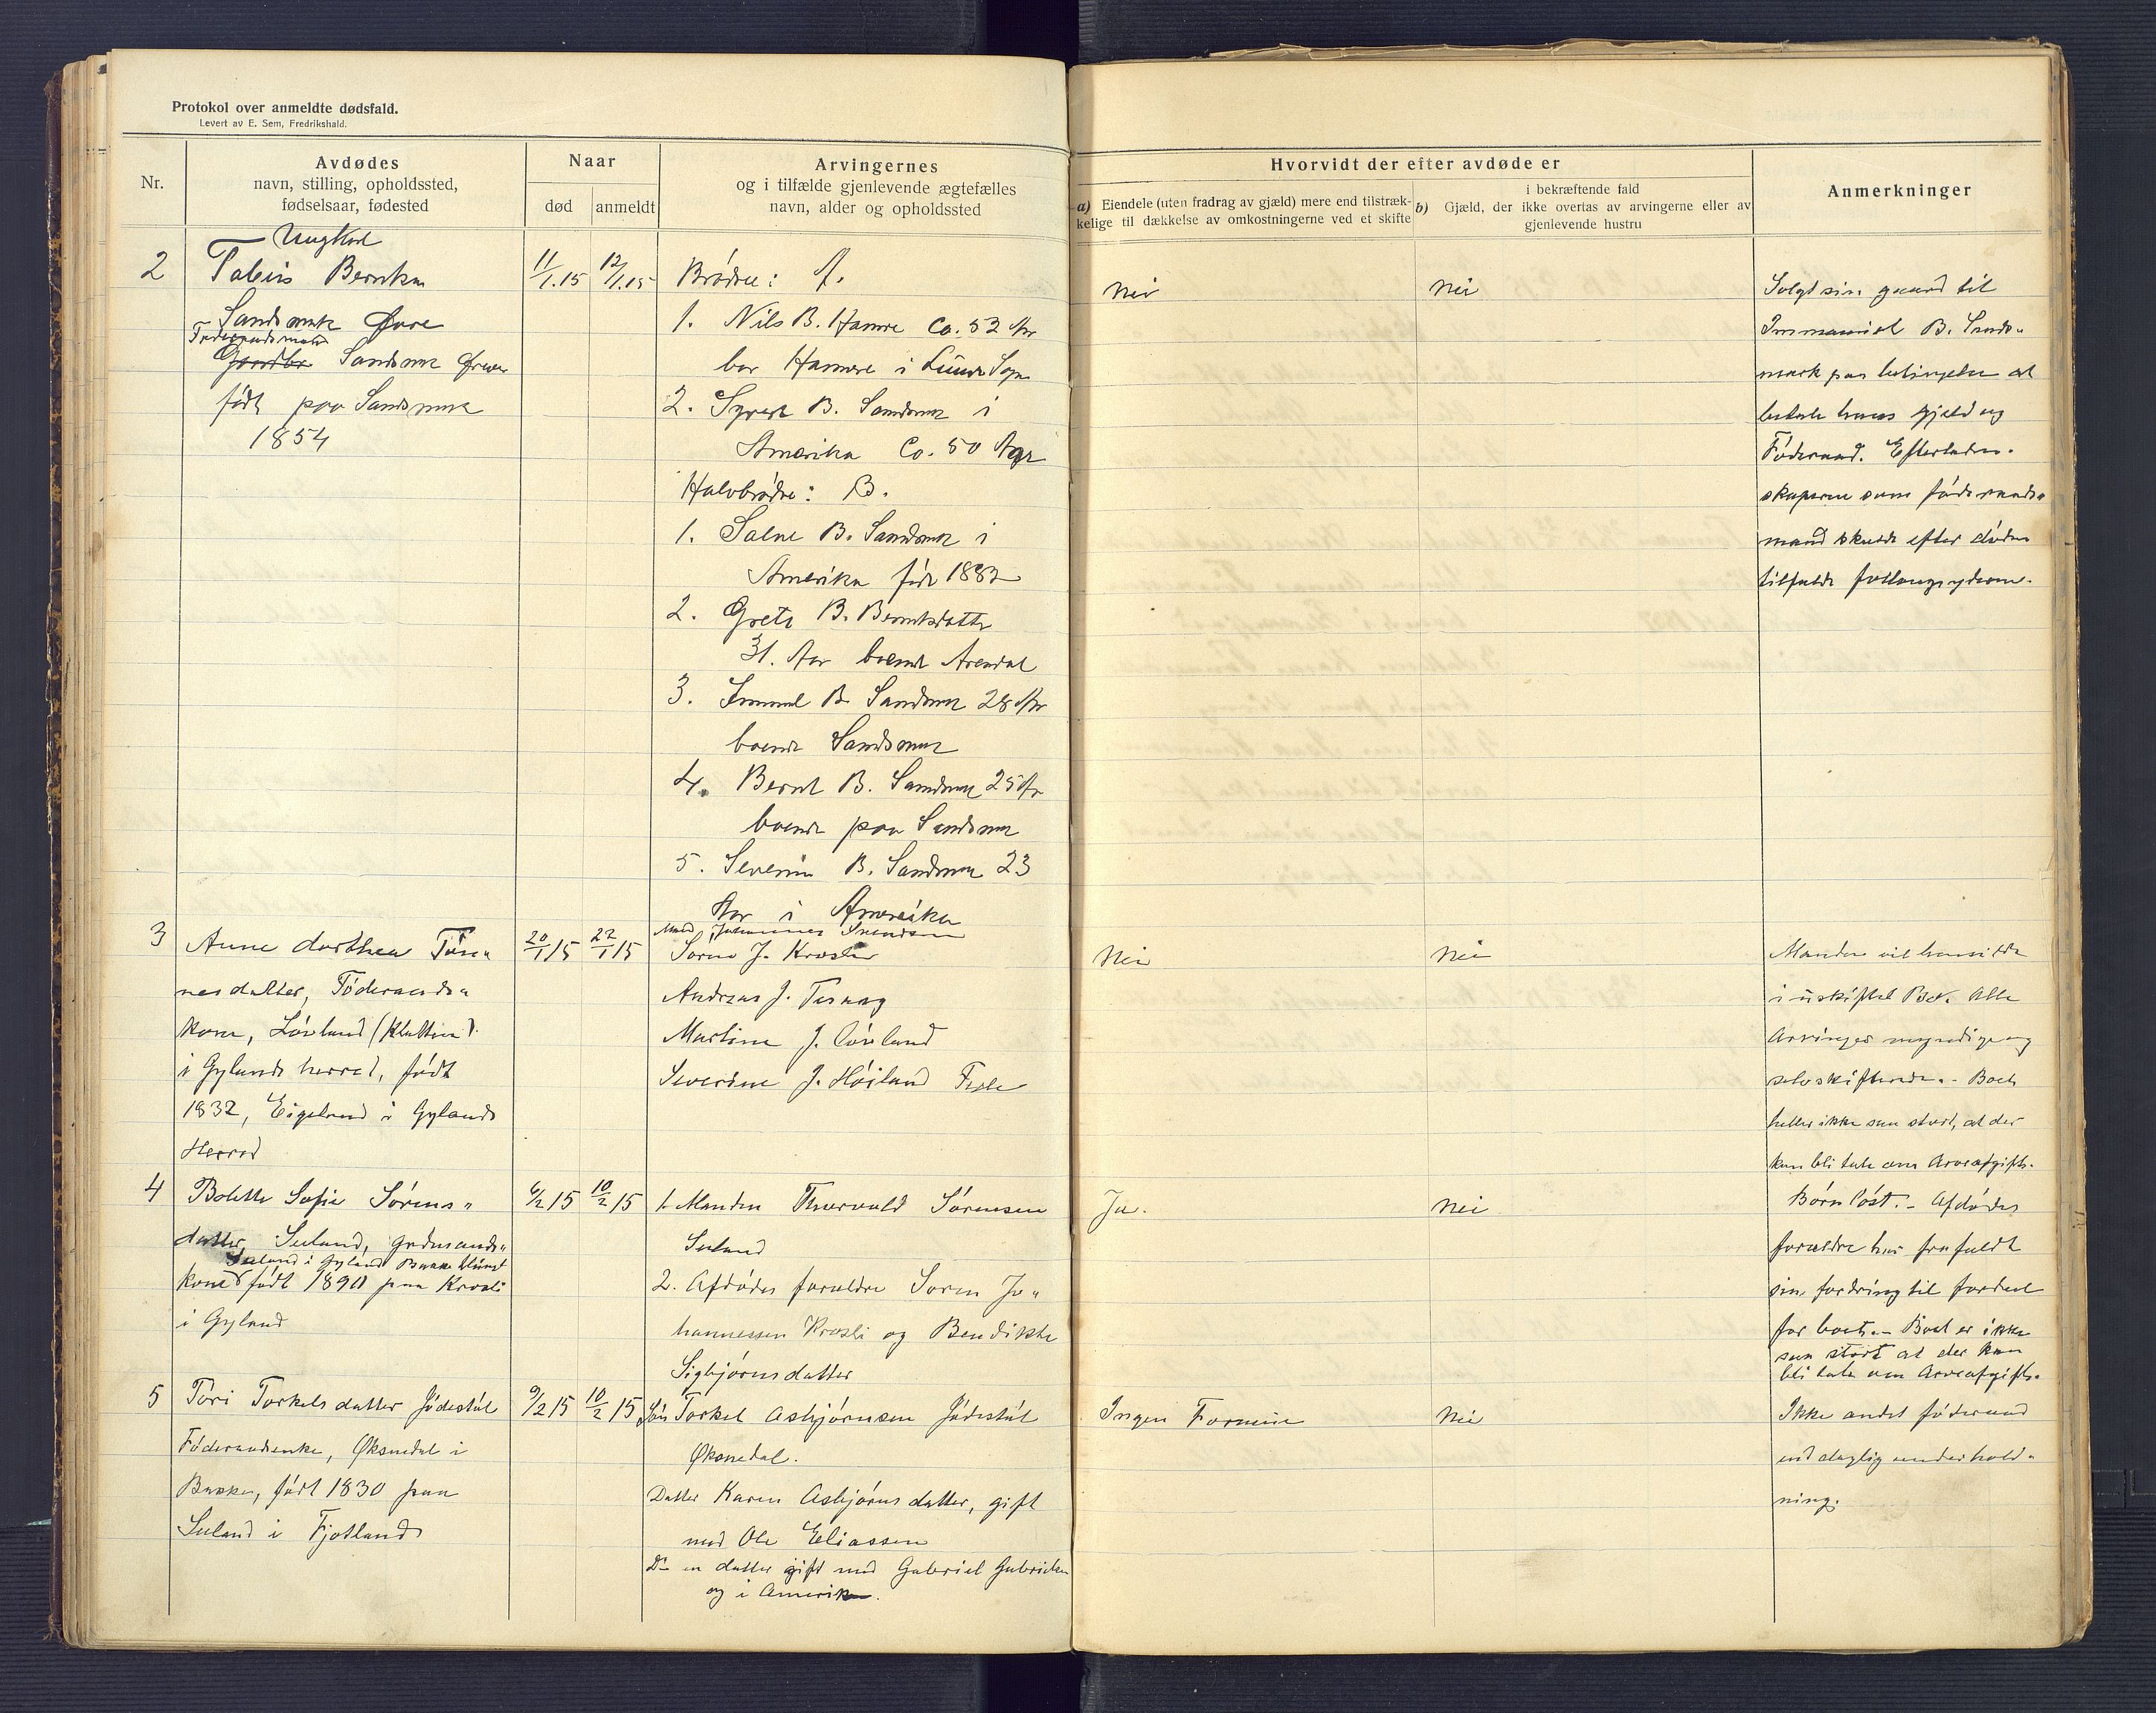 Protokol over anmeldte dødsfald.
Levert av E. Sem, Fredrikshald.
Nr.
Avdødes
navn, stilling, opholdssted,
fødselsaar, fødested
Naar
død
anmeldt
Arvingernes
og i tilfælde gjenlevende ægtefælles
navn, alder og opholdssted
Hvorvidt der efter avdøde er
a) Eiendele (uten fradrag av gjæld) mere end tilstræk-
kelige til dækkelse av omkostningerne ved et skifte
i bekræftende fald
b) Gjæld, der ikke overtas av arvingerne eller av
gjenlevende hustru
Anmerkninger
2
Ungkar
Tobias
Sandsmark Øvre
Føderaadsmand
Gaardbr Sandsmr
født paa Sandsmrk
1854
11/1.15
12/1.15
Brødre: A.
1. Nils B. Hamre Ca. 52 Aar
bor Hamre i Sogn
2. Syvert B. Sandsmr i
Amerika Ca. 50 Aar
Halvbrødre: B.
1. Salve B. Sandsmr i
Amerika født 1882
2. Grete B. Berntsdatter
31. Aar boende Arendal
3. B. Sandsmr 28 Aar
boende Sandsmr
4. Bernt B. Sandsmr 25 Aar
boende paa Sandsmr
5. Severin B. Sandsmr 23
Aar i Amerika
Nei
Nei
Solgt sin gaard til
Immanuel B. Sands-
mark paa betingelse at
betale hans gjæld og
Føderaad. Efterladen-
skaperne som føderaads-
mand skulde efter døden
tilfalde
3
Anne Dorthea Tøn-
nesdatter, Føderaads-
kone, Løvland (Kletten)
i Gylands herred, født
1832, Eigeland i Gylands
Herred
20/1 15
22/1 15
Mand Johannes Svendsen
Søren J. Krosli
Andreas J.
Martine J. Løvland
Severine J. Høiland
Nei
Nei
Manden vil hensidde
i uskiftet Bo. Alle
Arvinger myndige og
selvskiftende. - Boet
heller ikke saa stort, at der
kan bli tale om Arveafgift.
4
Bolette Sofie Sørens-
datter, Seland, grdmands-
Seland i Gyland
kone født 1890 paa Krosli
i Gyland
6/2 15
10/2 15
1. Manden Thorvald Sørensen
Seland
2. Afdødes forældre Søren Jo-
hannessen Krosli og Bendikte
Sigbjørnsdatter
Ja.
Nei
Børnløst. - Afdødes
forældre har frafaldt
sin fordring til fordel
for boet. - Boet er ikke
saa stort at der kan
bli tale om Arveafgift.
5
Tori Torkelsdatter Jødestøl
Føderaadsenke, Øksnedal i
Bakke, født 1830 paa
Seland i Fjotland
9/2 15
10/2 15
Søn Torkel Asbjørnsen Jødestøl
Øksnedal.
Datter Karen Asbjørnsdatter, gift
med Ole Eliassen
Do en datter gift med Gabriel Gabrielsen
og i Amerika.
Ingen Formue
Nei
Ikke andet føderaad
end daglig underhold-
ning.